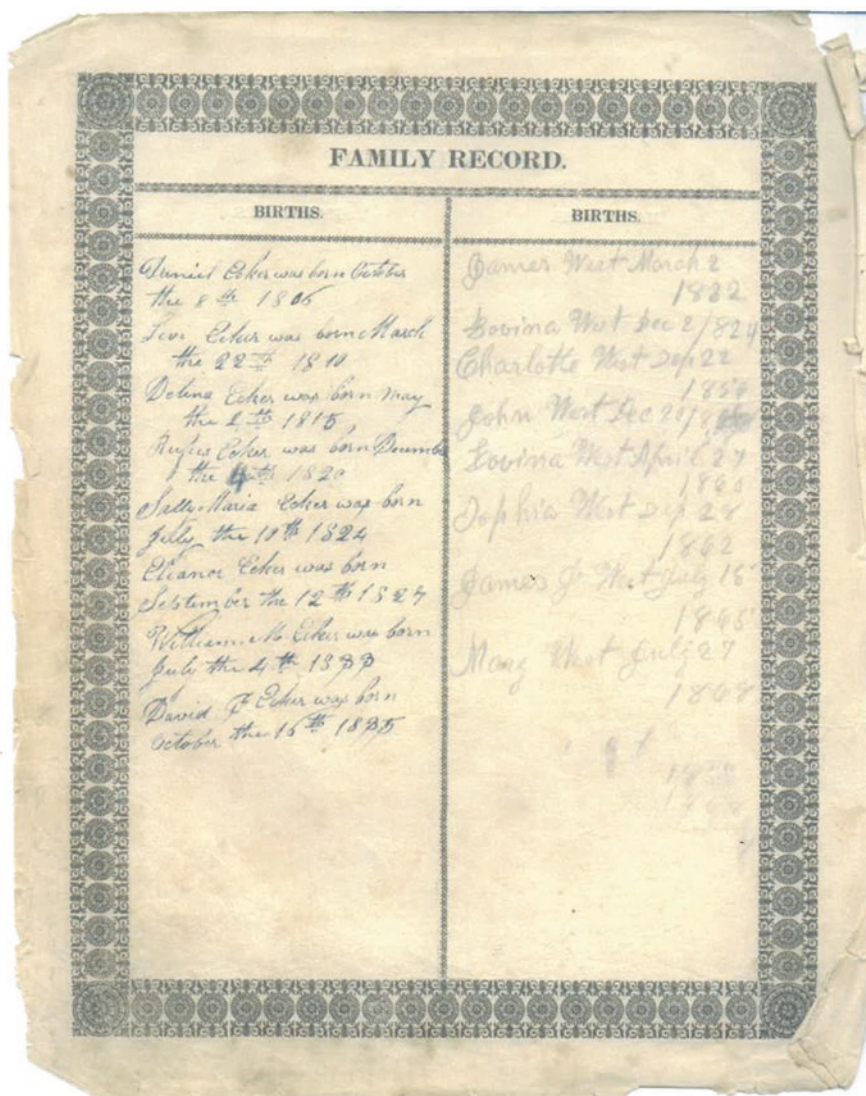 FAMILY RECORD.
BIRTHS.
Daniel Ecker was born October
the 8th 1806
Levi Ecker was born March
the 22th 1810
Ecker was born may
the 1815,
Rufus Ecker was born Decembe
the 4th 1820
Sally Maria Ecker was born
July the 10th 1824
Eleanor Ecker was born
September the 12th 1827
William M Ecker was born
July the 4th 1833
David F Ecker was born
October the 16th 1835
BIRTHS.
James West March 2
Lovina West Dec 2/1824
Charlotte West Sep 22
John West Dec 20
Lovina West April 27
1860
Sophia West Sep 28
1862
James J West July 15
1865
Mary West July 27
1868